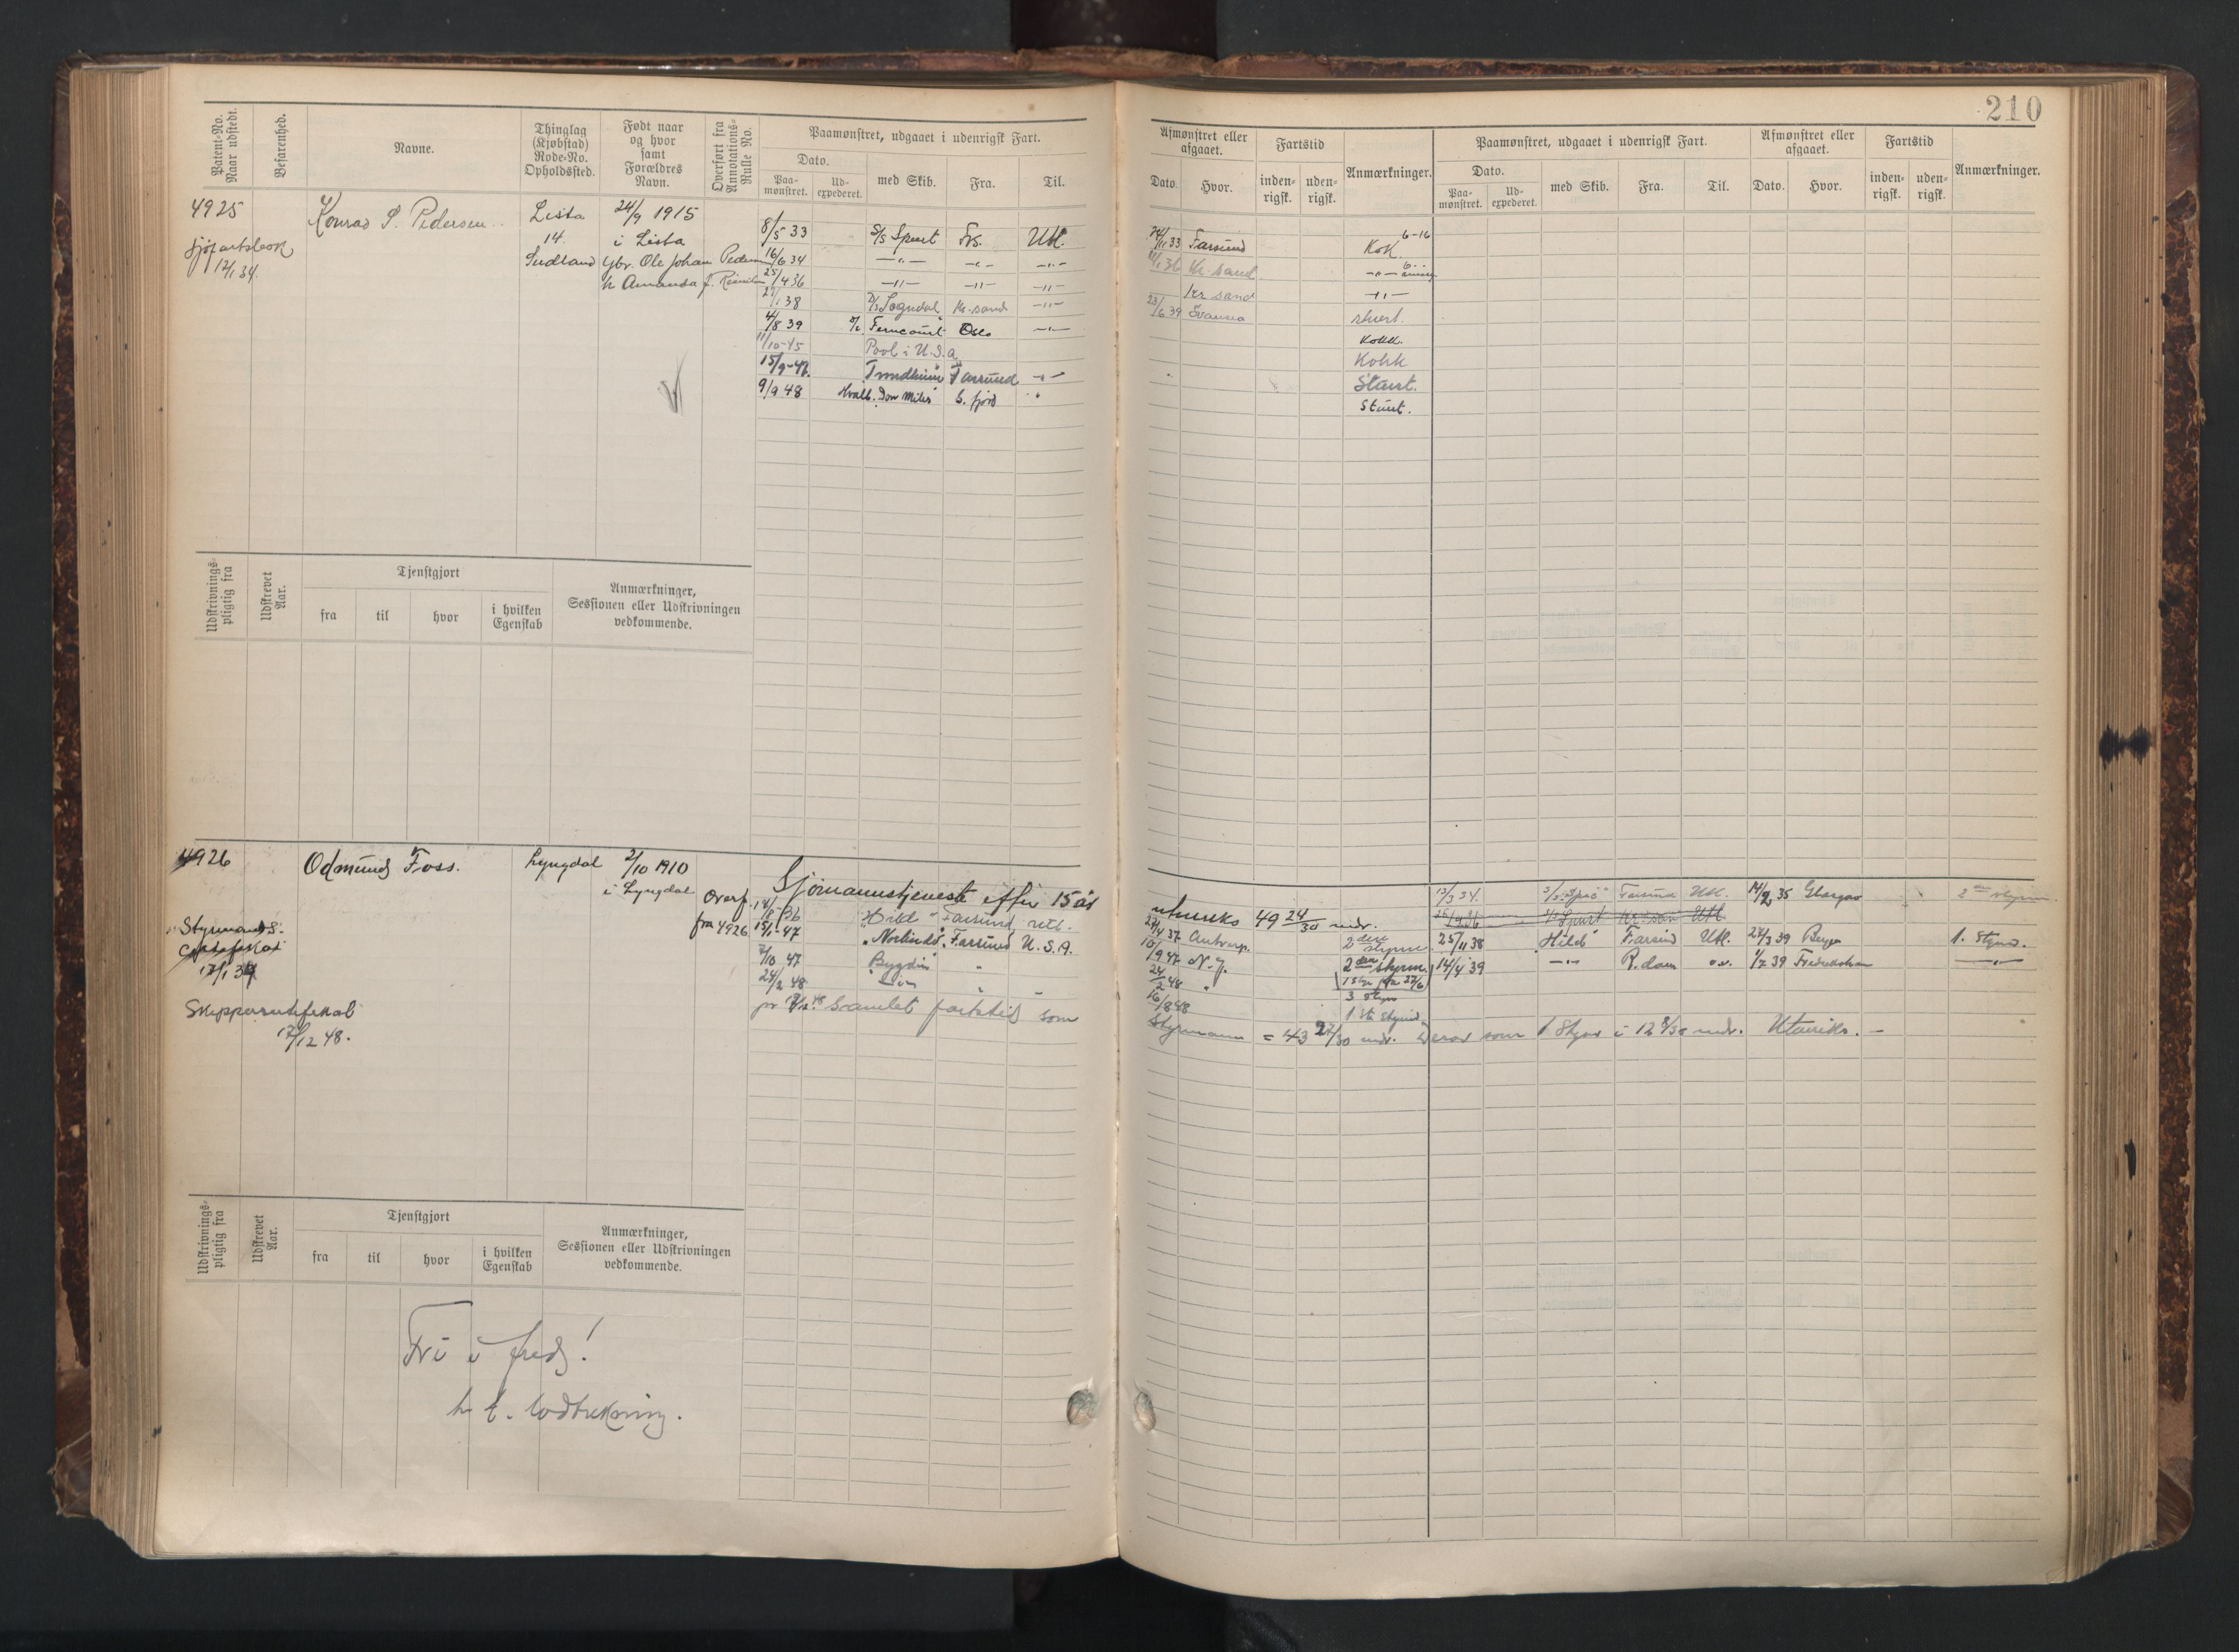 210
Patent-No. Naar udstedt.
Befarenhed.
Navne.
Thinglag (Kjøbstad) Rode-No. Opholdssted.
Født naar og hvor samt Forældres Navn.
Overført fra Annotations-Rulle No.
Paamønstret, udgaaet i udenrigsk Fart.
Dato.
Paa-mønstret.
Ud-expederet.
med Skib.
Fra.
Til.
Afmønstret eller afgaaet.
Dato.
Hvor.
Fartstid
inden-rigsk.
uden-rigsk.
Anmærkninger.
Paamønstret, udgaaet i udenrigsk Fart.
Dato.
Paa-mønstret.
Ud-expederet.
med Skib.
Fra.
Til.
Afmønstret eller afgaaet.
Dato.
Hvor.
Fartstid
inden-rigsk.
uden-rigsk.
Anmærkninger.
4925
12/1 34.
Konrad S. Pedersen
Lista
14.
24/9 1915
i Lista
Ole Johan Pedersen
h Amanda f.
8/5 33 S/S Spurt Frs. Utl.
16/6 34 —"— —"— —"—
25/4 36 —"— —"— —"—
27/1 38 Sogndal Kr.sand —"—
4/8 39 Ferncourt Oslo —"—
11/10-45 Pool i U.S.a
15/9-47. "Trondheim" Farsund —"—
9/9 48 Hvalk. Don Miles S. fjord "
24/11 33 Farsund Kok 6-16
Kr. sand —"—
Kr sand —"—
23/6 39 Svansea stuert.
Kokk.
Kokk
Stuert.
Stuert.
Udskrivnings-pligtig fra
Udskrevet Aar.
Tjenstgjort
fra
til
hvor
i hvilken Egenskab
Anmærkninger, Sessionen eller Udskrivningen vedkommende.
4926
Odmund Foss.
Lyngdal
2/10 1910
i Lyngdal
Styrmands-
17/1 34
17/12 48.
Overf.
fra 4926
Sjømannstjeneste efter 15 år
utenriks 49 24/30 mdr.
"Hild" Farsund utl.
15/1-47 "Norlinda", Farsund U.S.A.
7/10 47 "Bygdin" "
24/2 48
samlet fartstid som
Styrmann = 43 27/30 mdr. Derav som 1 Styrm i 12 8/30 mdr. Utenriks. —
27/4 37 Antverp. 2den styrm.
10/9 47 N.Y. 2den styrm.
24/2 48 "
3 Styrm
16/8 48 1ste Styrm
13/3 34. Farsund Utl. 14/2 35 Glasgow 2den styrm.
Spurt Kr.san Utl
25/11 38 Hild" Farsund Utl. 27/3 39 Bergen 1. Styrm.
14/4 39 —"— R.dam 1/7 39 —"—
Udskrivnings-pligtig fra
Udskrevet Aar.
Tjenstgjort
fra
til
hvor
i hvilken Egenskab
Anmærkninger, Sessionen eller Udskrivningen vedkommende.
Fri i fred!
h. t. lodtrekning.